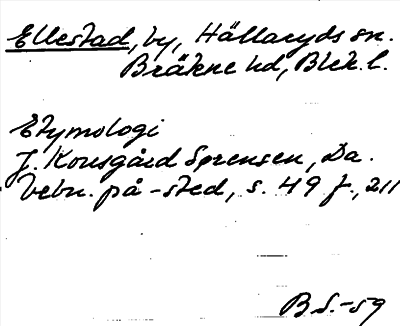 Ellestad, by, Hällaryds sn.
Bräkne hd, Blek. l.
Etymologi
J. Kousgård Sørensen, Da.
bebn. på -sted, s. 49 f., 211
B.S.-59